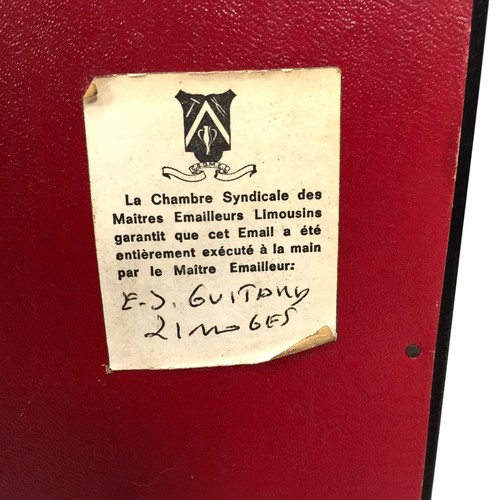 La Chambre Syndicale des
Maîtres Emailleurs Limousins
garantit que cet Email a été
entièrement exécuté à la main
par le Maître Emailleur:
E-J. GUITARD
LIMOGES